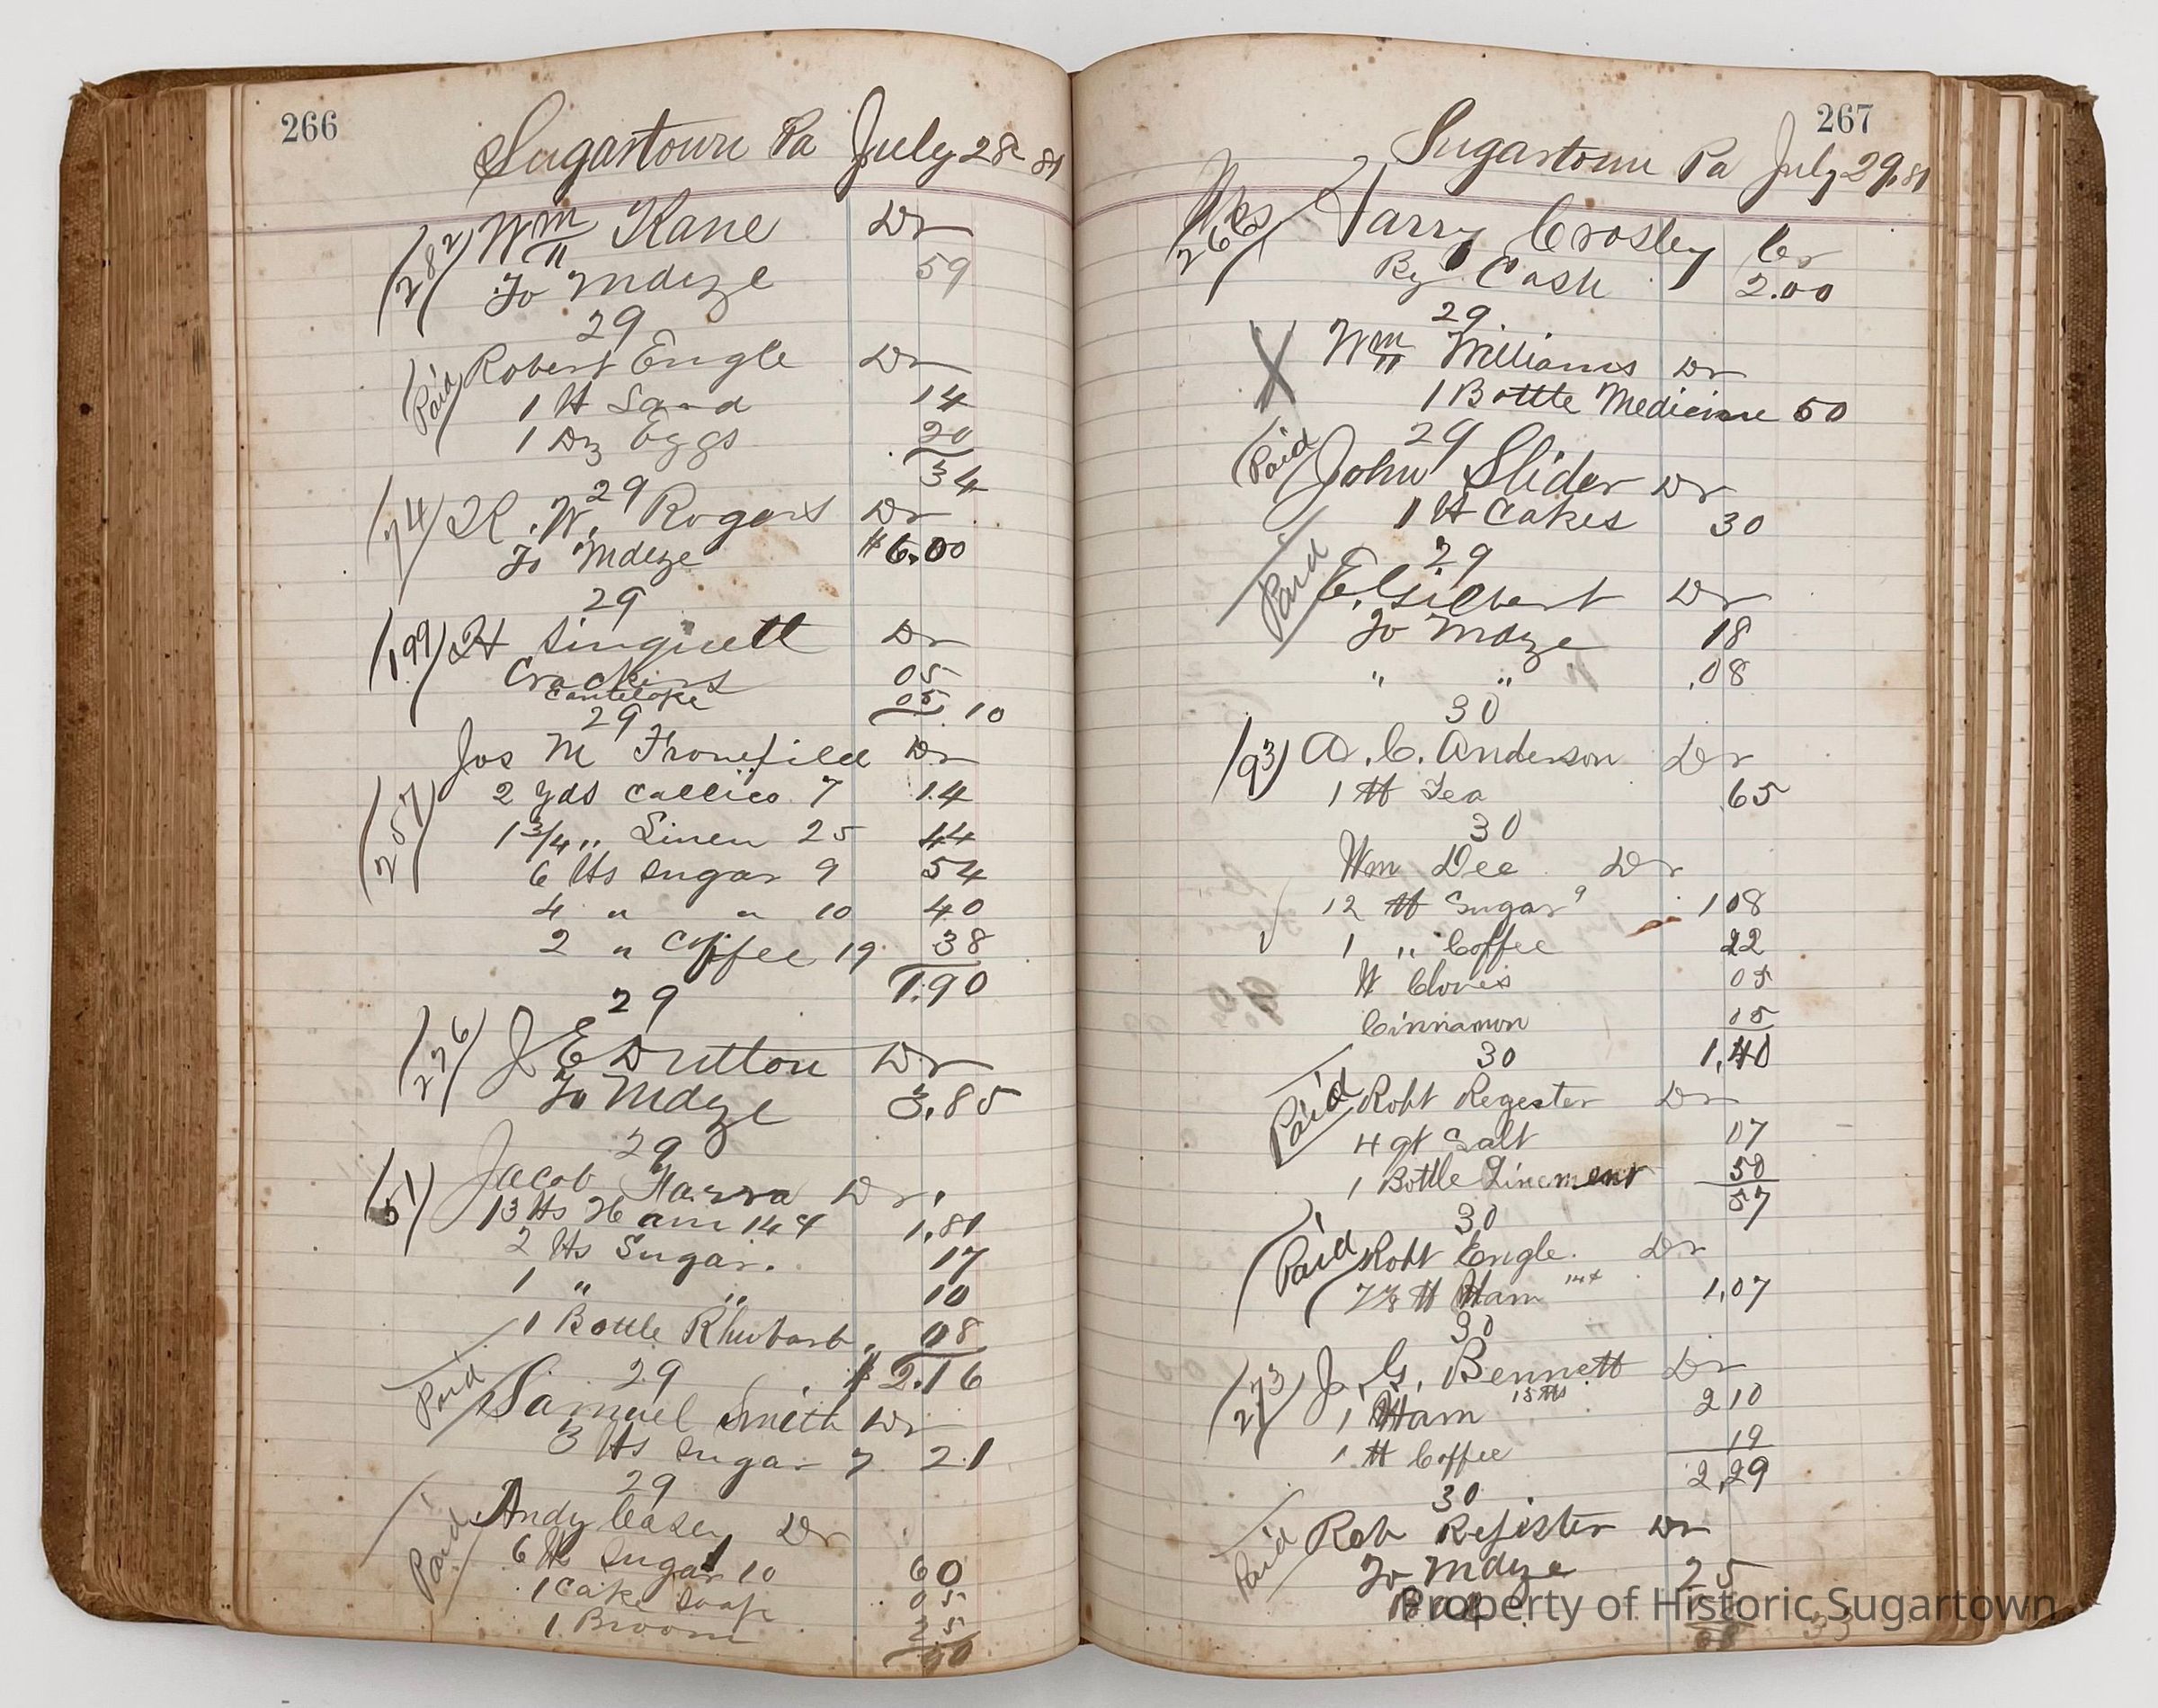 266
Sugartown Pa July 28 81
(282) Wm Kane Dr
To Mdze 59
29
Paid Robert Engle Dr
1 lb Lard 14
1 Dz Eggs 20
34
29
(74) R. W. Rogers Dr
To Mdze $6.00
29
(199) H Dr
Crackers 05
Canteloke 05 10
29
Jos M Fronefield Dr
(257) 2 yds Callico 7 14
1 3/4 " Linen 25 44
6 lbs Sugar 9 54
4 " " 10 40
2 " Coffee 19 38
1.90
29
(226) J E Dutton Dr
To Mdze 3.85
29
(51) Jacob Farra Dr
13 lbs Ham 14 1.81
2 lbs Sugar 17
1 " " 10
1 Bottle Rhubarb 08
29 $2.16
Paid Samuel Smith Dr
3 lbs Sugar 7 21
29
Paid Andy Casey Dr
6 lb Sugar 10 60
1 Cake Soap 05
1 Broom 25
90
267
Sugartown Pa July 29. 81
266 Harry Crosley Cr
By Cash 2.00
29
X Wm Williams Dr
1 Bottle Medicine 50
29
Paid John Slider Dr
1 lb Cakes 30
29
Paid E. Gilbert Dr
To Mdze 18
" " .08
30
(93) A. C. Anderson Dr
1 lb Tea 65
30
Wm Dee Dr
12 lb Sugar 9 108
1 " Coffee 22
lb Cloves 05
Cinnamon 05
30 1,40
Paid Robt Regester Dr
4 qt Salt 07
1 Bottle Linement 50
57
30
Paid Robt Engle. Dr
lb Ham 14 1,07
30
(273) J. G. Bennett Dr
1 Ham 15 lbs 210
1 lb Coffee 19
2,29
30
Paid Rob Rejister Dr
To Mdze 25
33
Property of Historic Sugartown